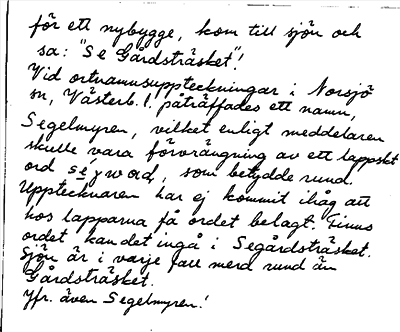 för ett nybygge, kom till sjön och
sa: "Se Gårdsträsket"!
Vid ortnamnsuppteckningar i Norsjö
sn, Västerb. l. påträffades ett namn,
Segelmyren, vilket enligt meddelaren
skulle vara förvrängning av ett lappskt
ord, som betydde rund.
Upptecknaren har ej kommit ihåg att
hos lapparna få ordet belagt. Finns
ordet kan det ingå i Segårdsträsket.
Sjön är i varje fall mera rund än
Gårdsträsket.
Jfr. även Segelmyren!